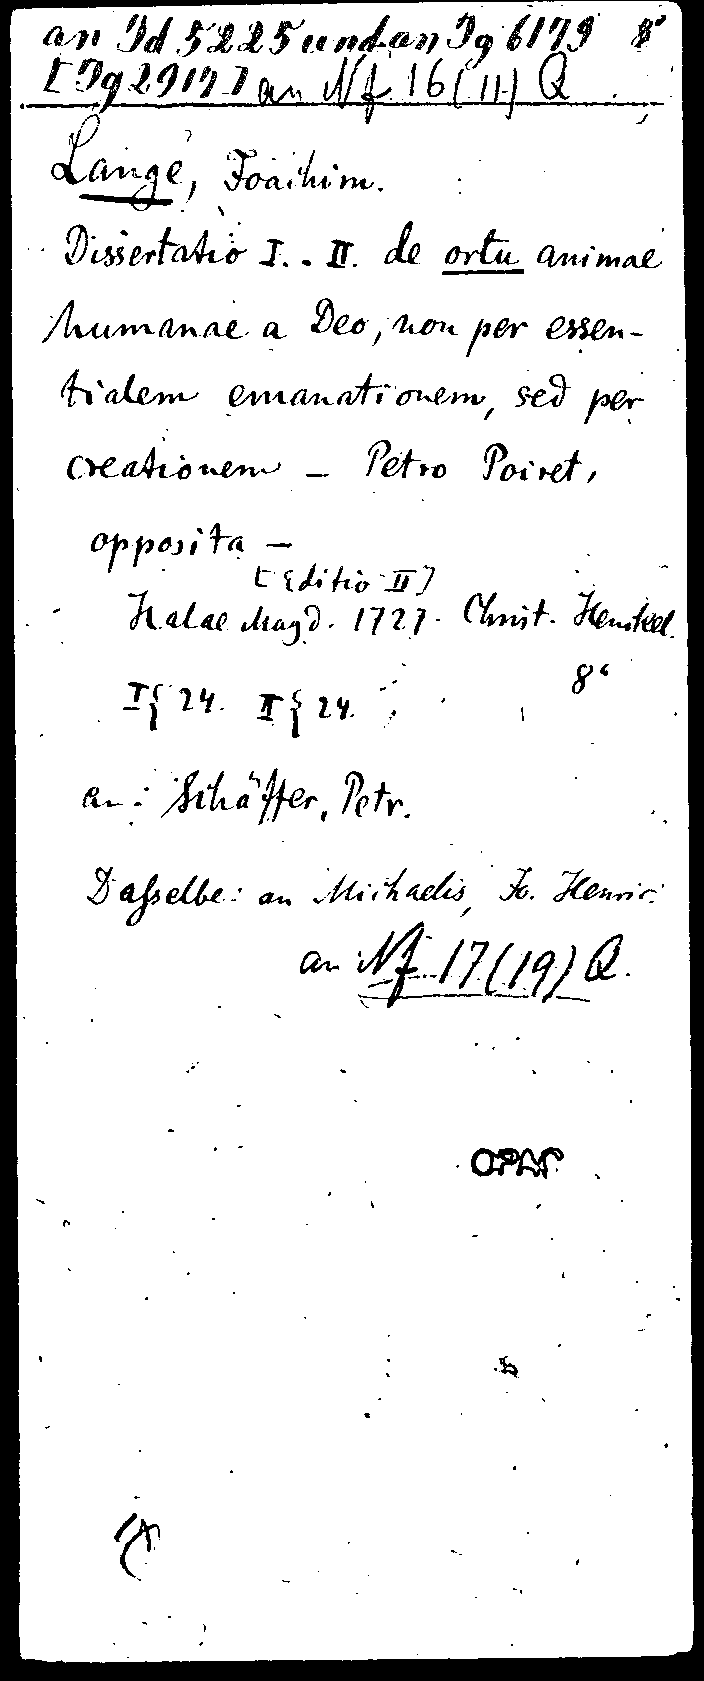 an Id 5225 und an Ig 6179 8°
[Ig 2917] an Nf 16 (11) Q
Lange, Joachim.
Dissertatio I. . II. de ortu animae
humanae a Deo, non per essen-
tialem emanationem, sed per
creationem – Petro Poiret,
opposita –
[Editio II]
Halae Magd. 1727. Christ. Henckel.
8°
I{ 24. II{ 24.
an: Schäffer, Petr.
Dasselbe: an Michaelis, Jo. Henric.
an Nf 17 (19) Q.
OPAC